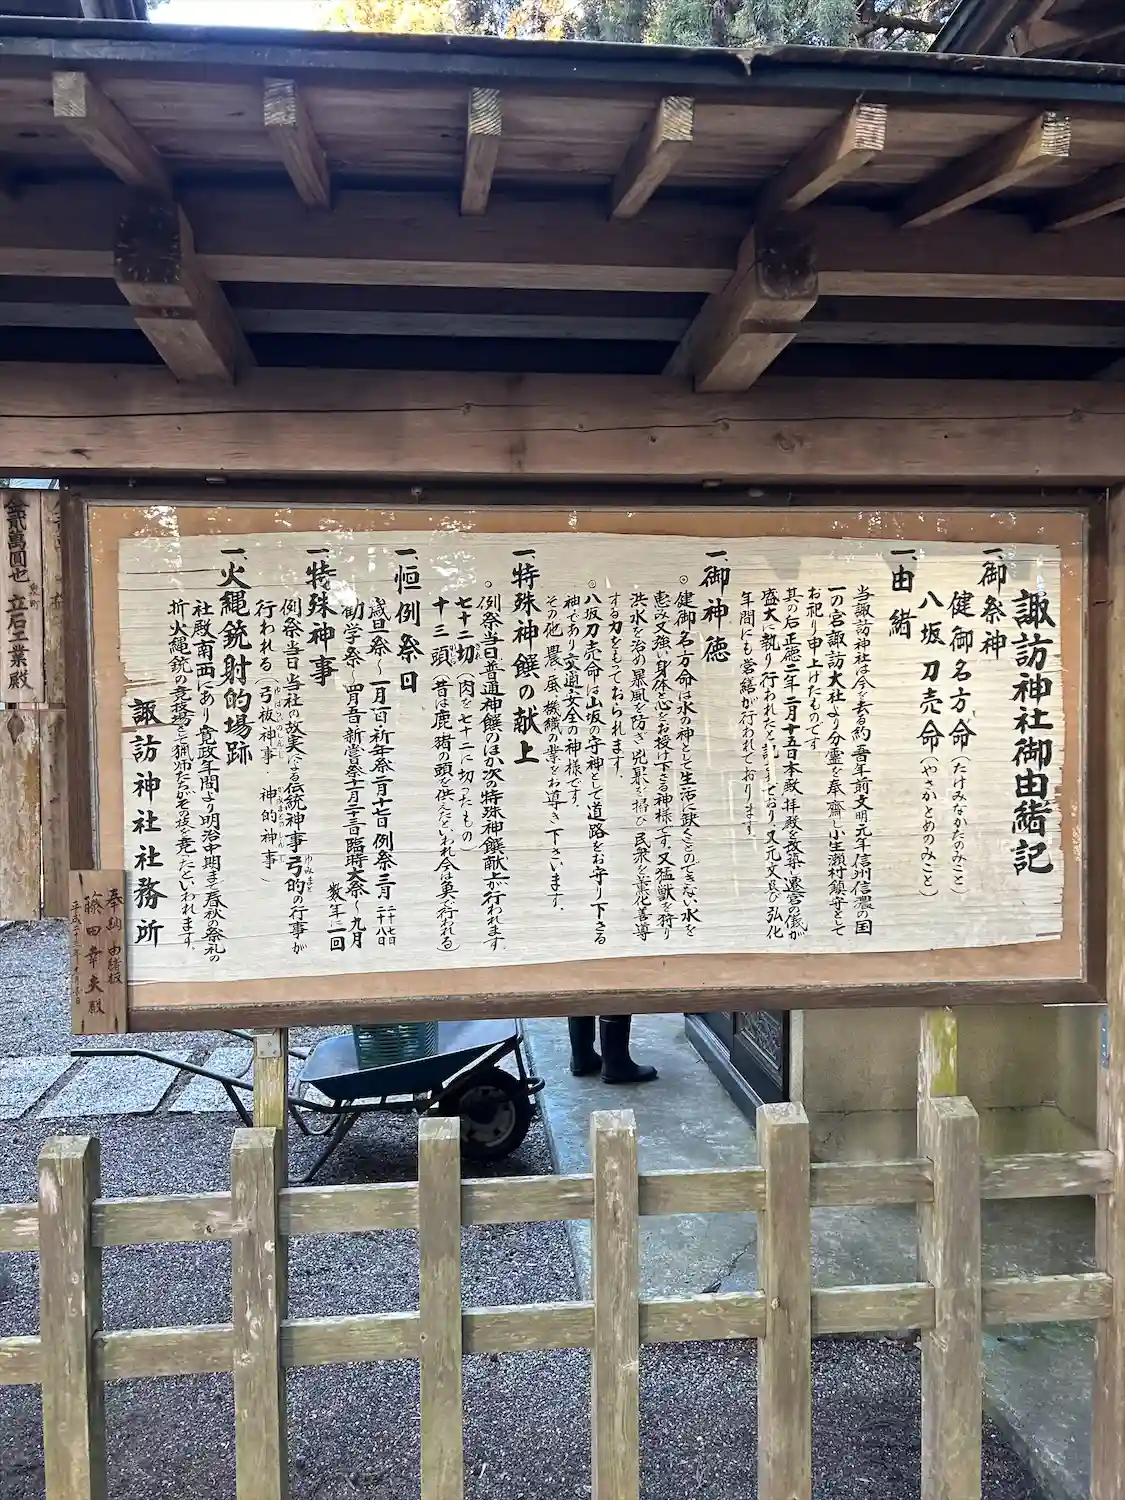 諏訪神社御由緒記
一、御祭神
健御名方命（たけみなかたのみこと）
八坂刀売命（やさかとめのみこと）
一、由緒
当諏訪神社は今を去る約五百年前文明元年信州信濃の国
一の宮諏訪大社より分霊を奉齋し小生瀬村鎮守として
お祀り申上げたものです
其の后正徳二年二月十五日本殿拝殿を改築し遷宮の儀が
盛大に執り行われたと記されており又元文及び弘化
年間にも営繕が行われております。
一、御神徳
◦健御名方命は水の神として生活に欠くことのできない水を
恵み又強い身体と心をお授け下さる神様です。又猛獣を狩り
洪水を治め暴風を防ぎ兇暴を掃ひ民衆を薫化善導
する力をもっておられます。
◦八坂刀売命は山坂の守神として道路をお守り下さる
神であり交通安全の神様です。
その他、農、蚕、機織の業をお導き下さいます。
一、特殊神饌の献上
◦例祭当日普通神饌のほか次の特殊神饌献上が行われます
七十二切（肉を七十二に切ったもの）
十三頭（昔は鹿、猪の頭を供えたといわれ今は魚で行われる）
一、恒例祭日
歳旦祭〜一月一日・祈年祭二月十七日・例祭三月二十七日二十八日
勧学祭〜四月吉日・新嘗祭十一月二十三日・臨時大祭〜九月数年に一回
一、特殊神事
例祭当日当社の故実による伝統神事弓的（ゆみまと）の行事が
行われる（弓祓神事・神的神事）
一、火縄銃射的場跡
社殿南西にあり寛政年間より明治中期まで春秋の祭礼の
折火縄銃の競技場とし猟師たちがその技を競ったといわれます。
諏訪神社社務所
奉納 由緒板
藤田幸夫殿
金貮萬圓也
立石工業殿